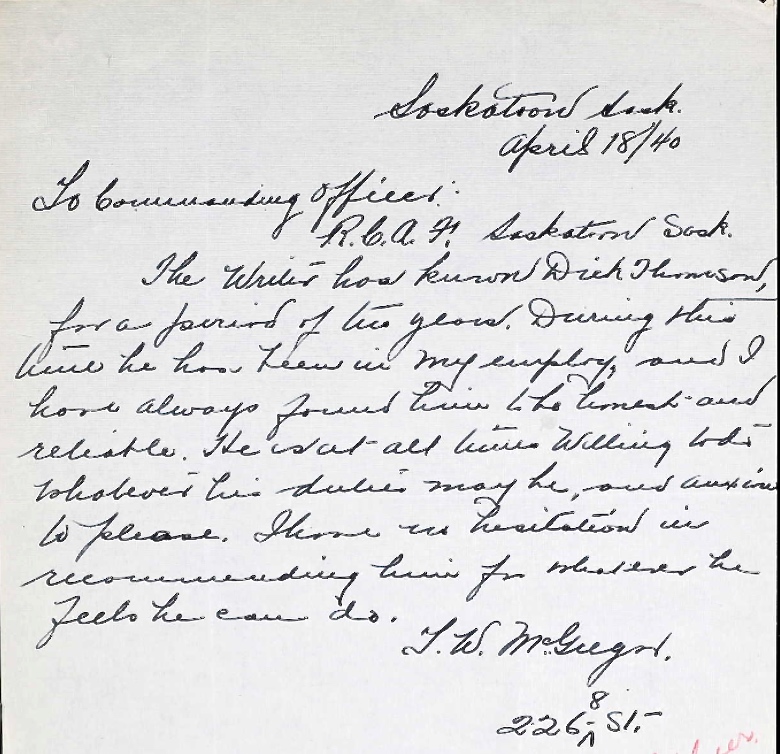 Saskatoon Sask.
April 18/40
To Commanding Officer.
R.C.A.F. Saskatoon Sask.
The Writer has known Dick Thomson,
for a period of years. During this
time he has been in my employ, and I
have always found him to be honest and
reliable. He is at all times Willing to do
whatever his duties may be, and anxious
to please. I have no hesitation in
recommending him for whatever he
feels he can do.
T. W. McGregor.
8
226- St.